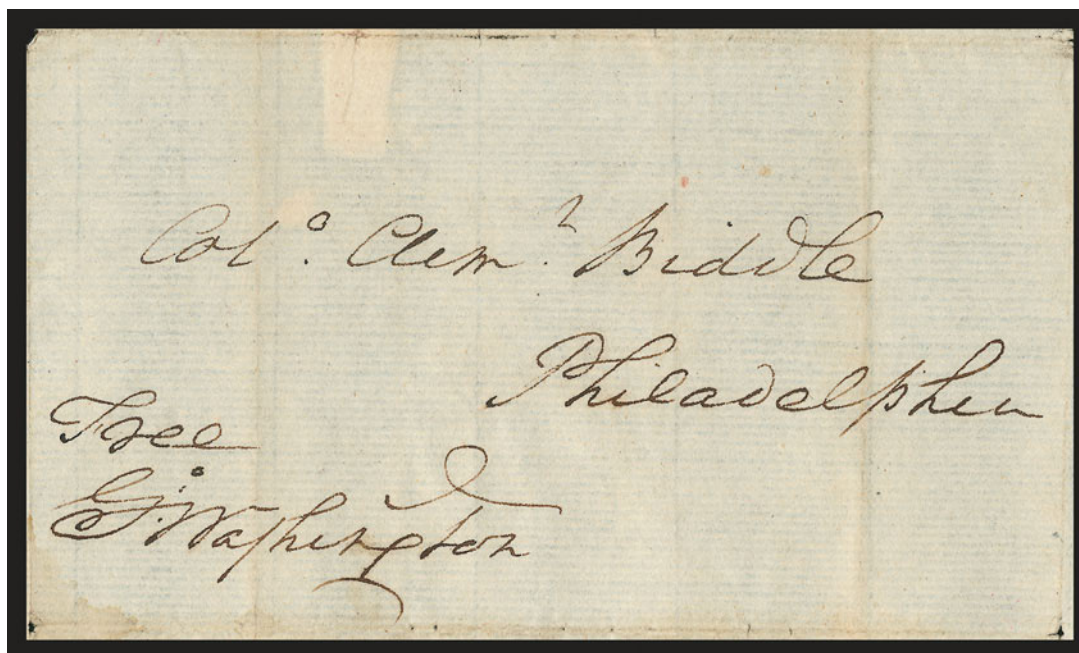 Colo. Clemt. Biddle
Philadelphia
Free
Go. Washington